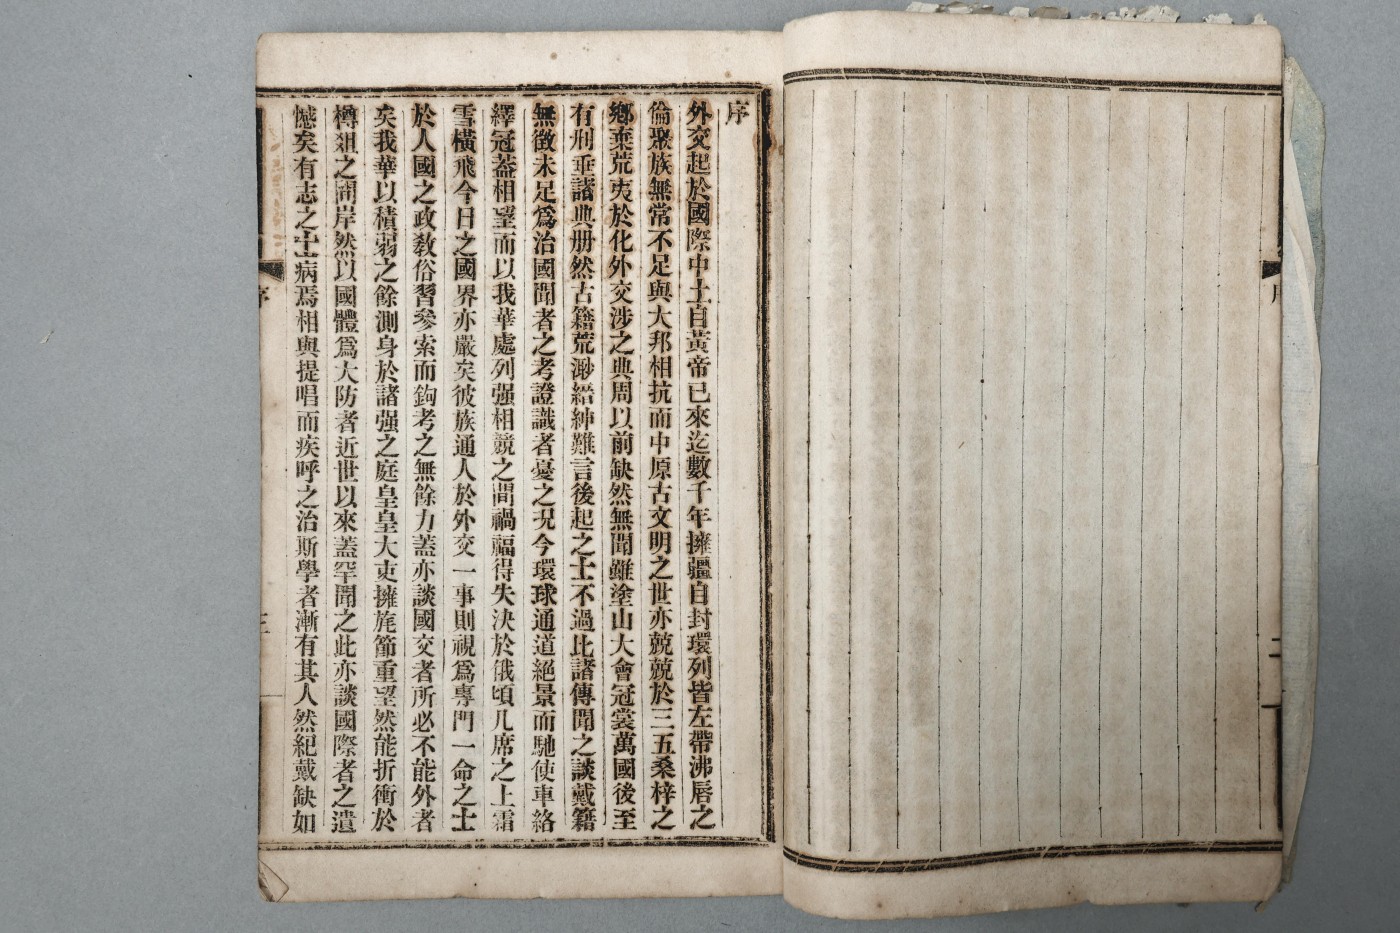 序
外交起於國際中土自黃帝已來迄數千年擁疆自封環列皆左帶沸唇之
倫聚族無常不足與大邦相抗而中原古文明之世亦兢兢於三五桑梓之
鄉棄荒夷於化外交涉之典周以前缺然無聞雖塗山大會冠裳萬國後至
有刑垂諸典册然古籍荒渺縉紳難言後起之士不過比諸傳聞之談戴籍
無徵未足爲治國聞者之考證識者憂之况今環球通道絕景而馳使車絡
繹冠蓋相望而以我華處列强相競之間禍福得失決於俄頃几席之上霜
雪橫飛今日之國界亦嚴矣彼族通人於外交一事則視爲專門一命之士
於人國之政敎俗習參索而鈎考之無餘力蓋亦談國交者所必不能外者
矣我華以積弱之餘測身於諸强之庭皇皇大吏擁旄節重望然能折衝於
樽俎之間岸然以國體爲大防者近世以來蓋罕聞之此亦談國際者之遺
憾矣有志之士病焉相與提唱而疾呼之治斯學者漸有其人然紀戴缺如
序
三
二